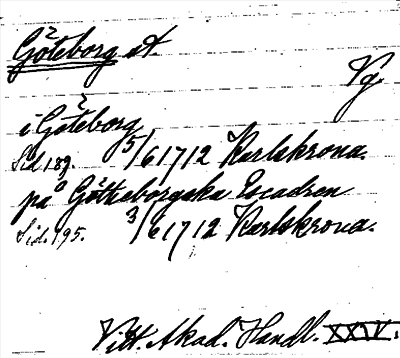 Göteborg st.
Vg.
i Göteborg
Sid 189. 5/6 1712 Karlskrona.
på Götheborgska Escadren
Sid. 195. 3/6 1712 Karlskrona.
Vitt. Akad. Handl. XXIV.